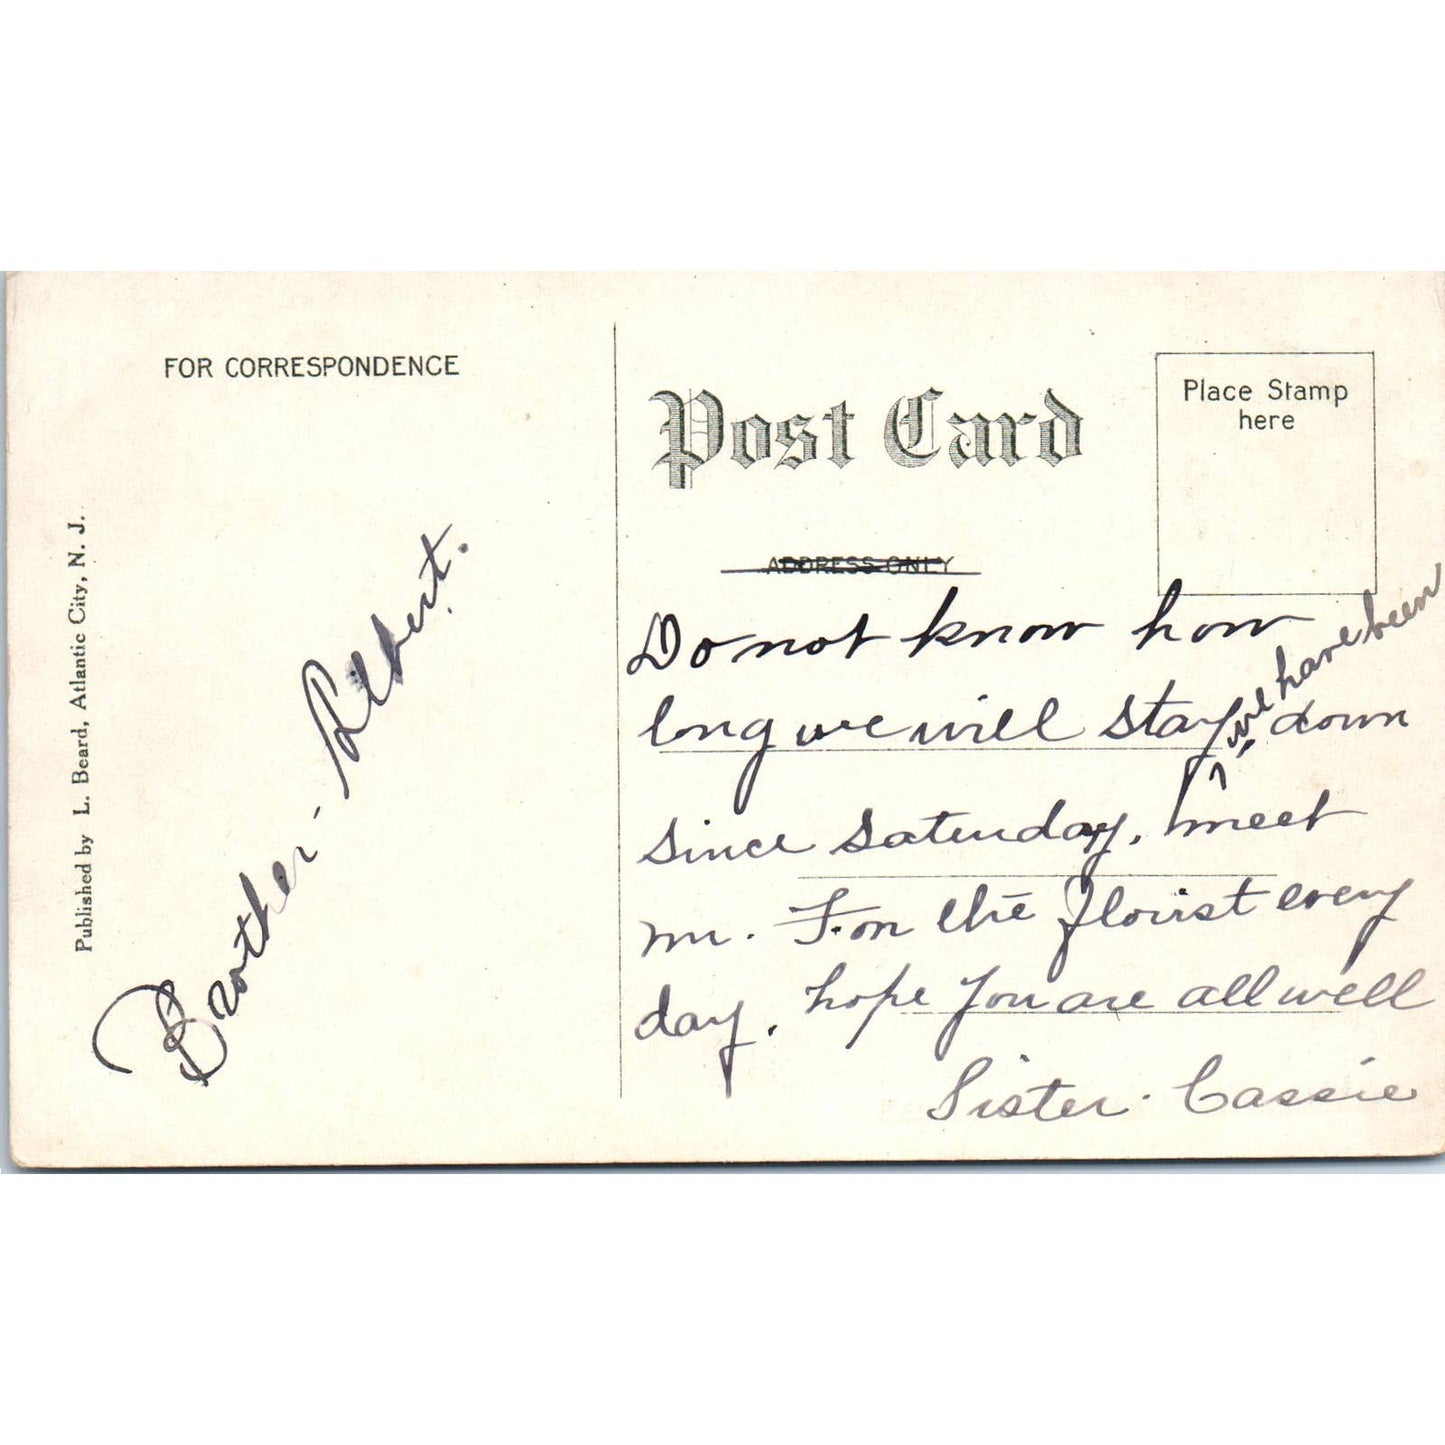 FOR CORRESPONDENCE
Published by L. Beard, Atlantic City, N. J.
Brother - Albert.
Post Card
Place Stamp
here
ADDRESS ONLY
Do not know how
long we will stay we have been down
since Saturday, meet
mr. the florist every
day. hope you are all well
Sister. Cassie